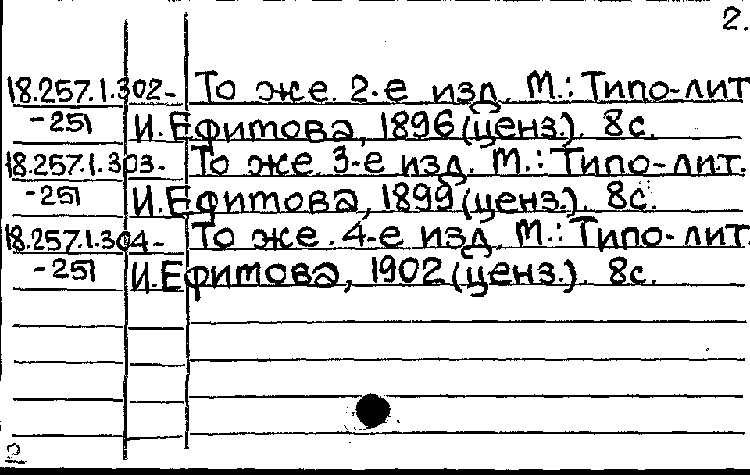 2.
18.257.1.302- То же. 2-е изд. М.: Типо-лит
-251 И. Ефимова, 1896 (ценз.). 8с.
18.257.1.303- То же. 3-е изд. М.: Типо-лит.
-251 И. Ефимова, 1899 (ценз.). 8с.
18.257.1.304- То же. 4-е изд. М.: Типо-лит.
-251 И. Ефимова, 1902 (ценз.). 8с.